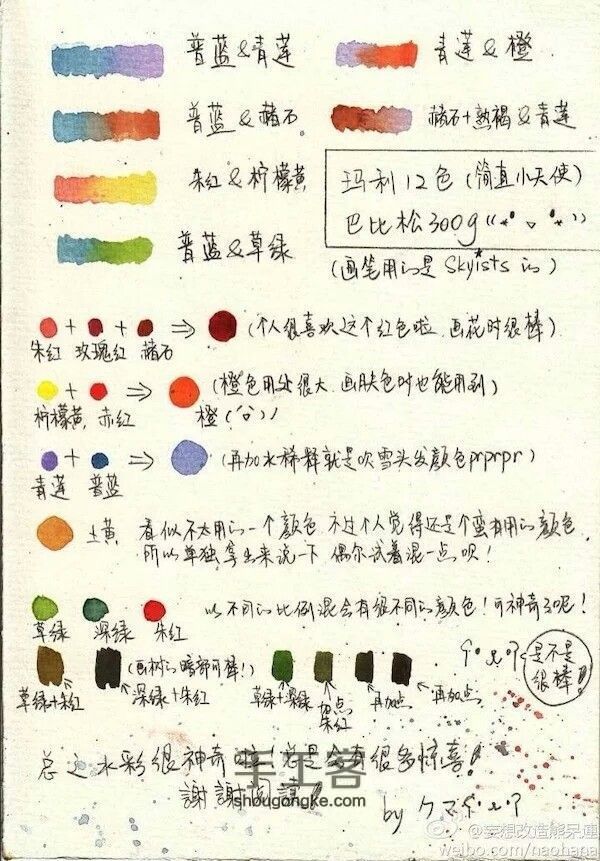 普蓝&青莲
青莲&橙
普蓝&赭石
赭石+熟褐&青莲
朱红&柠檬黄
普蓝&草绿
玛利12色(简直小天使)
巴比松300g
(画笔用的是 Skyists 的)
+ + ⇒ (个人很喜欢这个红色啦 画花时很棒)
朱红 玫瑰红 赭石
+ ⇒ (橙色用处很大 画肤色时也能用到)
柠檬黄 赤红 橙
+ ⇒ (再加水稀释就是吹雪头发颜色prprpr)
青莲 普蓝
土黄 看似不太用的一个颜色 不过个人觉得还是个蛮有用的颜色
所以单独拿出来说一下 偶尔试着混一点呗!
以不同的比例混会有很不同的颜色!可神奇了呢!
草绿 深绿 朱红
是不是
很棒!!
(画树的暗部可棒!)
草绿+朱红 深绿+朱红 草绿+深绿 加点朱红 再加点 再加点
总之水彩很神奇啦!总是会有很多惊喜!
謝謝阅读!
by クマ
手工客
shougongke.com
@妄想改造熊呆連
weibo.com/naohana